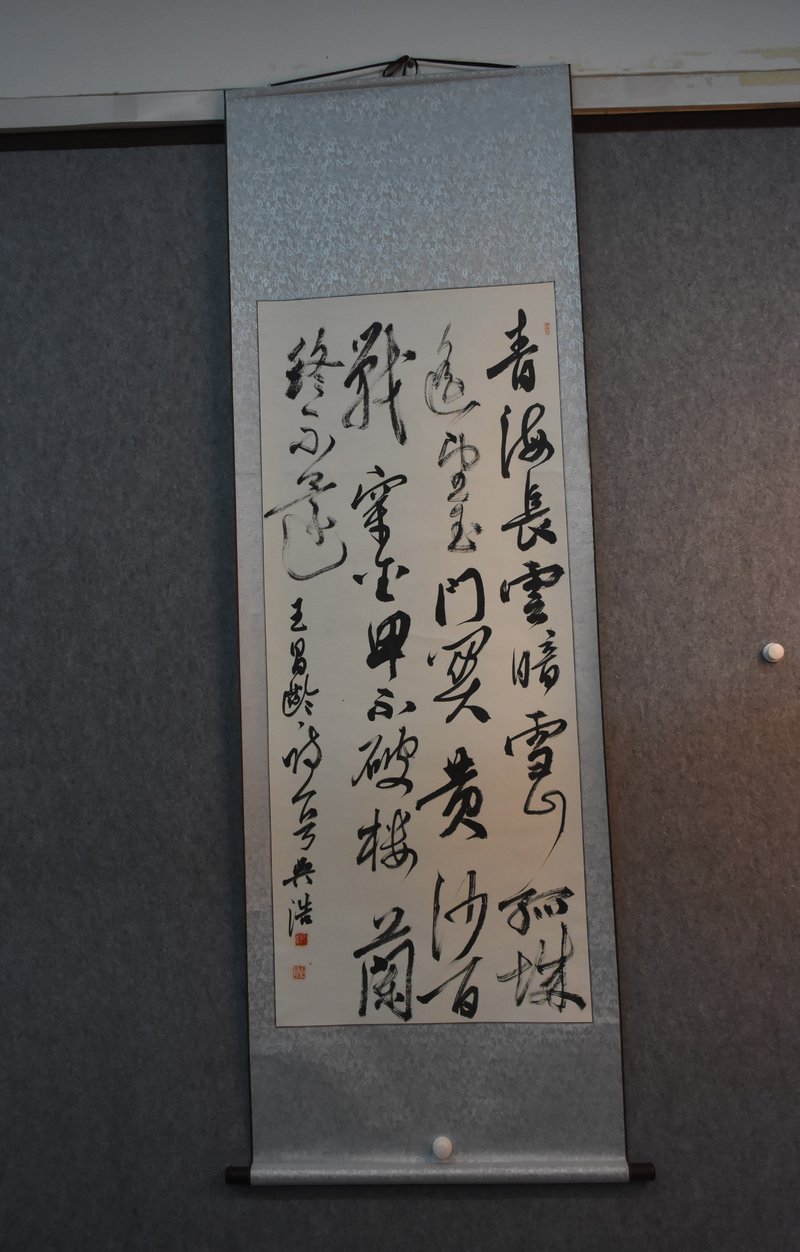 青海長雲暗雪山孤城
遥望玉門関黄沙百
戰穿金甲不破楼蘭
終不還
王昌齡詩 浩